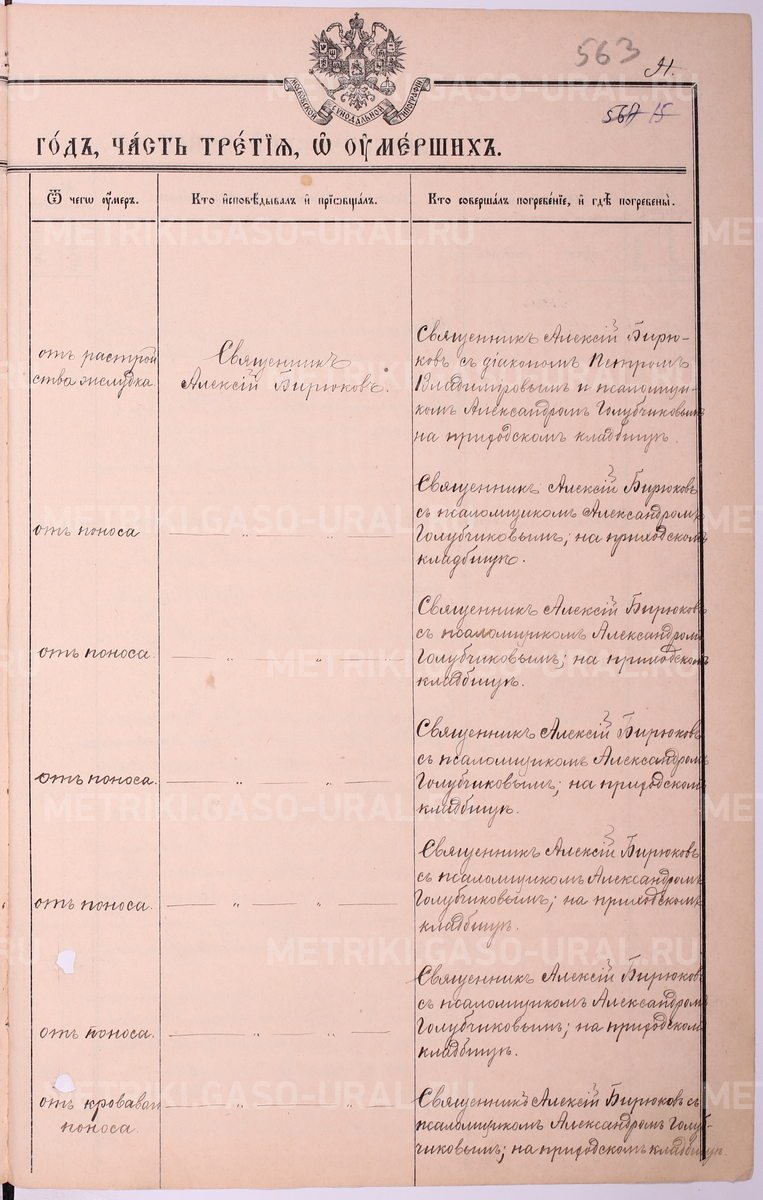 563
91.
567 15
МОСКОВСКОЙ СѴНОДАЛЬНОЙ ТИПОГРАФІИ
ГО́ДЪ, ЧА́СТЬ ТРЕ́ТІЯ, Ѡ҆ ОУ҆МЕ́РШИХЪ.
Ѿ чегѡ ᲂу҆́меръ.
Кто и҆сповѣ́дывалъ и҆ прїѡбща́лъ.
Кто соверша́лъ погребе́нїе, и҆ гдѣ̀ погребены̀.
отъ растрой
ства желудка
Священникъ
Алексій Бирюковъ.
Священникъ Алексій Бирю-
ковъ съ діакономъ Петромъ
Владиміровымъ и псаломщи-
комъ Александромъ Голубчиковымъ
на приходскомъ кладбищѣ.
отъ поноса
— „ „ —
Священникъ Алексій Бирюковъ
съ псаломщикомъ Александромъ
Голубчиковымъ; на приходскомъ
кладбищѣ.
отъ поноса.
— „ „ —
Священникъ Алексій Бирюковъ
съ псаломщикомъ Александромъ
Голубчиковымъ; на приходскомъ
кладбищѣ.
отъ поноса.
— „ „ —
Священникъ Алексій Бирюковъ
съ псаломщикомъ Александромъ
Голубчиковымъ; на приходскомъ
кладбищѣ.
отъ поноса.
— „ „ —
Священникъ Алексій Бирюковъ
съ псаломщикомъ Александромъ
Голубчиковымъ; на приходскомъ
кладбищѣ.
отъ поноса.
— „ „ —
Священникъ Алексій Бирюковъ
съ псаломщикомъ Александромъ
Голубчиковымъ; на приходскомъ
кладбищѣ.
отъ кроваваго
поноса.
— „ „ —
Священникъ Алексій Бирюковъ съ
псаломщикомъ Александромъ Голуб-
чиковымъ; на приходскомъ кладбищѣ.
METRIKI.GASO-URAL.RU